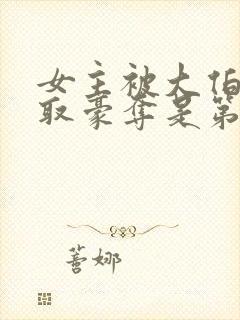 女主被大伯
取豪夺是第
蓍娜